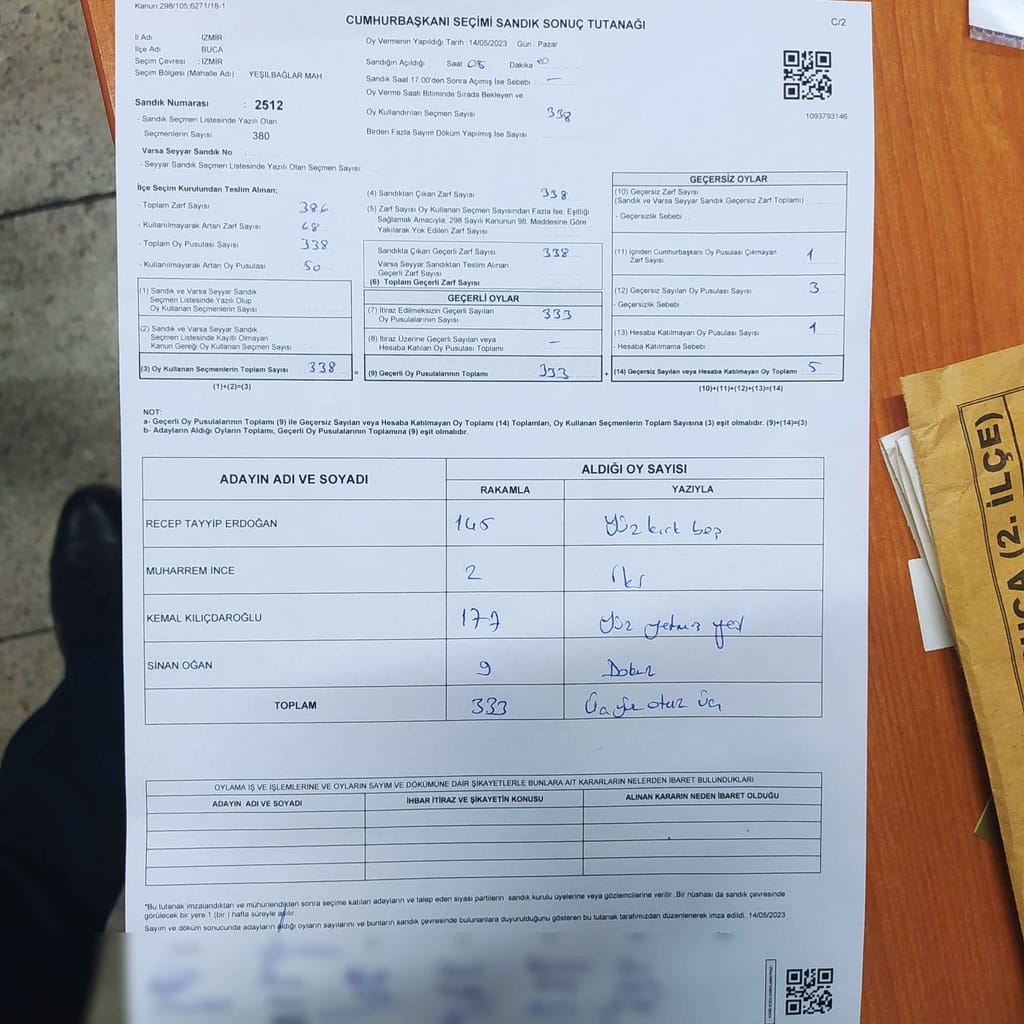 Kanun:298/105:6271/18-1
CUMHURBAŞKANI SEÇİMİ SANDIK SONUÇ TUTANAĞI
C/2
İl Adı : İZMİR
İlçe Adı : BUCA
Seçim Çevresi : İZMİR
Seçim Bölgesi (Mahalle Adı) : YEŞİLBAĞLAR MAH.
Sandık Numarası : 2512
- Sandık Seçmen Listesinde Yazılı Olan
Seçmenlerin Sayısı : 380
Varsa Seyyar Sandık No :
- Seyyar Sandık Seçmen Listesinde Yazılı Olan Seçmen Sayısı:
Oy Vermenin Yapıldığı Tarih : 14/05/2023 Gün : Pazar
Sandığın Açıldığı Saat 08 Dakika
Sandık Saat 17:00'den Sonra Açımış İse Sebebi : —
Oy Verme Saati Bitiminde Sırada Bekleyen ve
Oy Kullandırılan Seçmen Sayısı : 338
Birden Fazla Sayım Döküm Yapılmış İse Sayısı :
1093793146
İlçe Seçim Kurulundan Teslim Alınan;
- Toplam Zarf Sayısı : 386
- Kullanılmayarak Artan Zarf Sayısı : 48
- Toplam Oy Pusulası Sayısı : 338
- Kullanılmayarak Artan Oy Pusulası : 50
(1) Sandık ve Varsa Seyyar Sandık
Seçmen Listesinde Yazılı Olup
Oy Kullanan Seçmenlerin Sayısı :
(2) Sandık ve Varsa Seyyar Sandık
Seçmen Listesinde Kayıtlı Olmayan
Kanun Gereği Oy Kullanan Seçmen Sayısı :
(3) Oy Kullanan Seçmenlerin Toplam Sayısı : 338
(1)+(2)=(3)
(4) Sandıktan Çıkan Zarf Sayısı : 338
(5) Zarf Sayısı Oy Kullanan Seçmen Sayısından Fazla İse, Eşitliği
Sağlamak Amacıyla; 298 Sayılı Kanunun 98. Maddesine Göre
Yakılarak Yok Edilen Zarf Sayısı :
Sandıkta Çıkan Geçerli Zarf Sayısı : 338
Varsa Seyyar Sandıktan Teslim Alınan
Geçerli Zarf Sayısı :
(6) Toplam Geçerli Zarf Sayısı :
GEÇERLİ OYLAR
(7) İtiraz Edilmeksizin Geçerli Sayılan
Oy Pusulalarının Sayısı : 333
(8) İtiraz Üzerine Geçerli Sayılan veya
Hesaba Katılan Oy Pusulası Toplamı : —
(9) Geçerli Oy Pusulalarının Toplamı : 333
GEÇERSİZ OYLAR
(10) Geçersiz Zarf Sayısı
(Sandık ve Varsa Seyyar Sandık Geçersiz Zarf Toplamı) :
- Geçersizlik Sebebi :
(11) İçinden Cumhurbaşkanı Oy Pusulası Çıkmayan
Zarf Sayısı : 1
(12) Geçersiz Sayılan Oy Pusulası Sayısı : 3
- Geçersizlik Sebebi :
(13) Hesaba Katılmayan Oy Pusulası Sayısı : 1
- Hesaba Katılmama Sebebi :
(14) Geçersiz Sayılan veya Hesaba Katılmayan Oy Toplamı : 5
(10)+(11)+(12)+(13)=(14)
NOT:
a- Geçerli Oy Pusulalarının Toplamı (9) ile Geçersiz Sayılan veya Hesaba Katılmayan Oy Toplamı (14) Toplamları, Oy Kullanan Seçmenlerin Toplam Sayısına (3) eşit olmalıdır. (9)+(14)=(3)
b- Adayların Aldığı Oyların Toplamı, Geçerli Oy Pusulalarının Toplamına (9) eşit olmalıdır.
ADAYIN ADI VE SOYADI ALDIĞI OY SAYISI
RAKAMLA YAZIYLA
RECEP TAYYİP ERDOĞAN 145 Yüz kırk beş
MUHARREM İNCE 2 İki
KEMAL KILIÇDAROĞLU 177 Yüz yetmiş yedi
SİNAN OĞAN 9 Dokuz
TOPLAM 333 Üçyüz otuz üç
OYLAMA İŞ VE İŞLEMLERİNE VE OYLARIN SAYIM VE DÖKÜMÜNE DAİR ŞİKAYETLERLE BUNLARA AİT KARARLARIN NELERDEN İBARET BULUNDUKLARI
ADAYIN ADI VE SOYADI İHBAR İTİRAZ VE ŞİKAYETİN KONUSU ALINAN KARARIN NEDEN İBARET OLDUĞU
*Bu tutanak imzalandıktan ve mühürlendikten sonra seçime katılan adayların ve talep eden siyasi partilerin sandık kurulu üyelerine veya gözlemcilerine verilir .Bir nüshası da sandık çevresinde
görülecek bir yere 1 (bir ) hafta süreyle asılır.
Sayım ve döküm sonucunda adayların aldığı oyların sayılarını ve bunların sandık çevresinde bulunanlara duyurulduğunu gösteren bu tutanak tarafımızdan düzenlenerek imza edildi. 14/05/2023
BUCA (2. İLÇE)